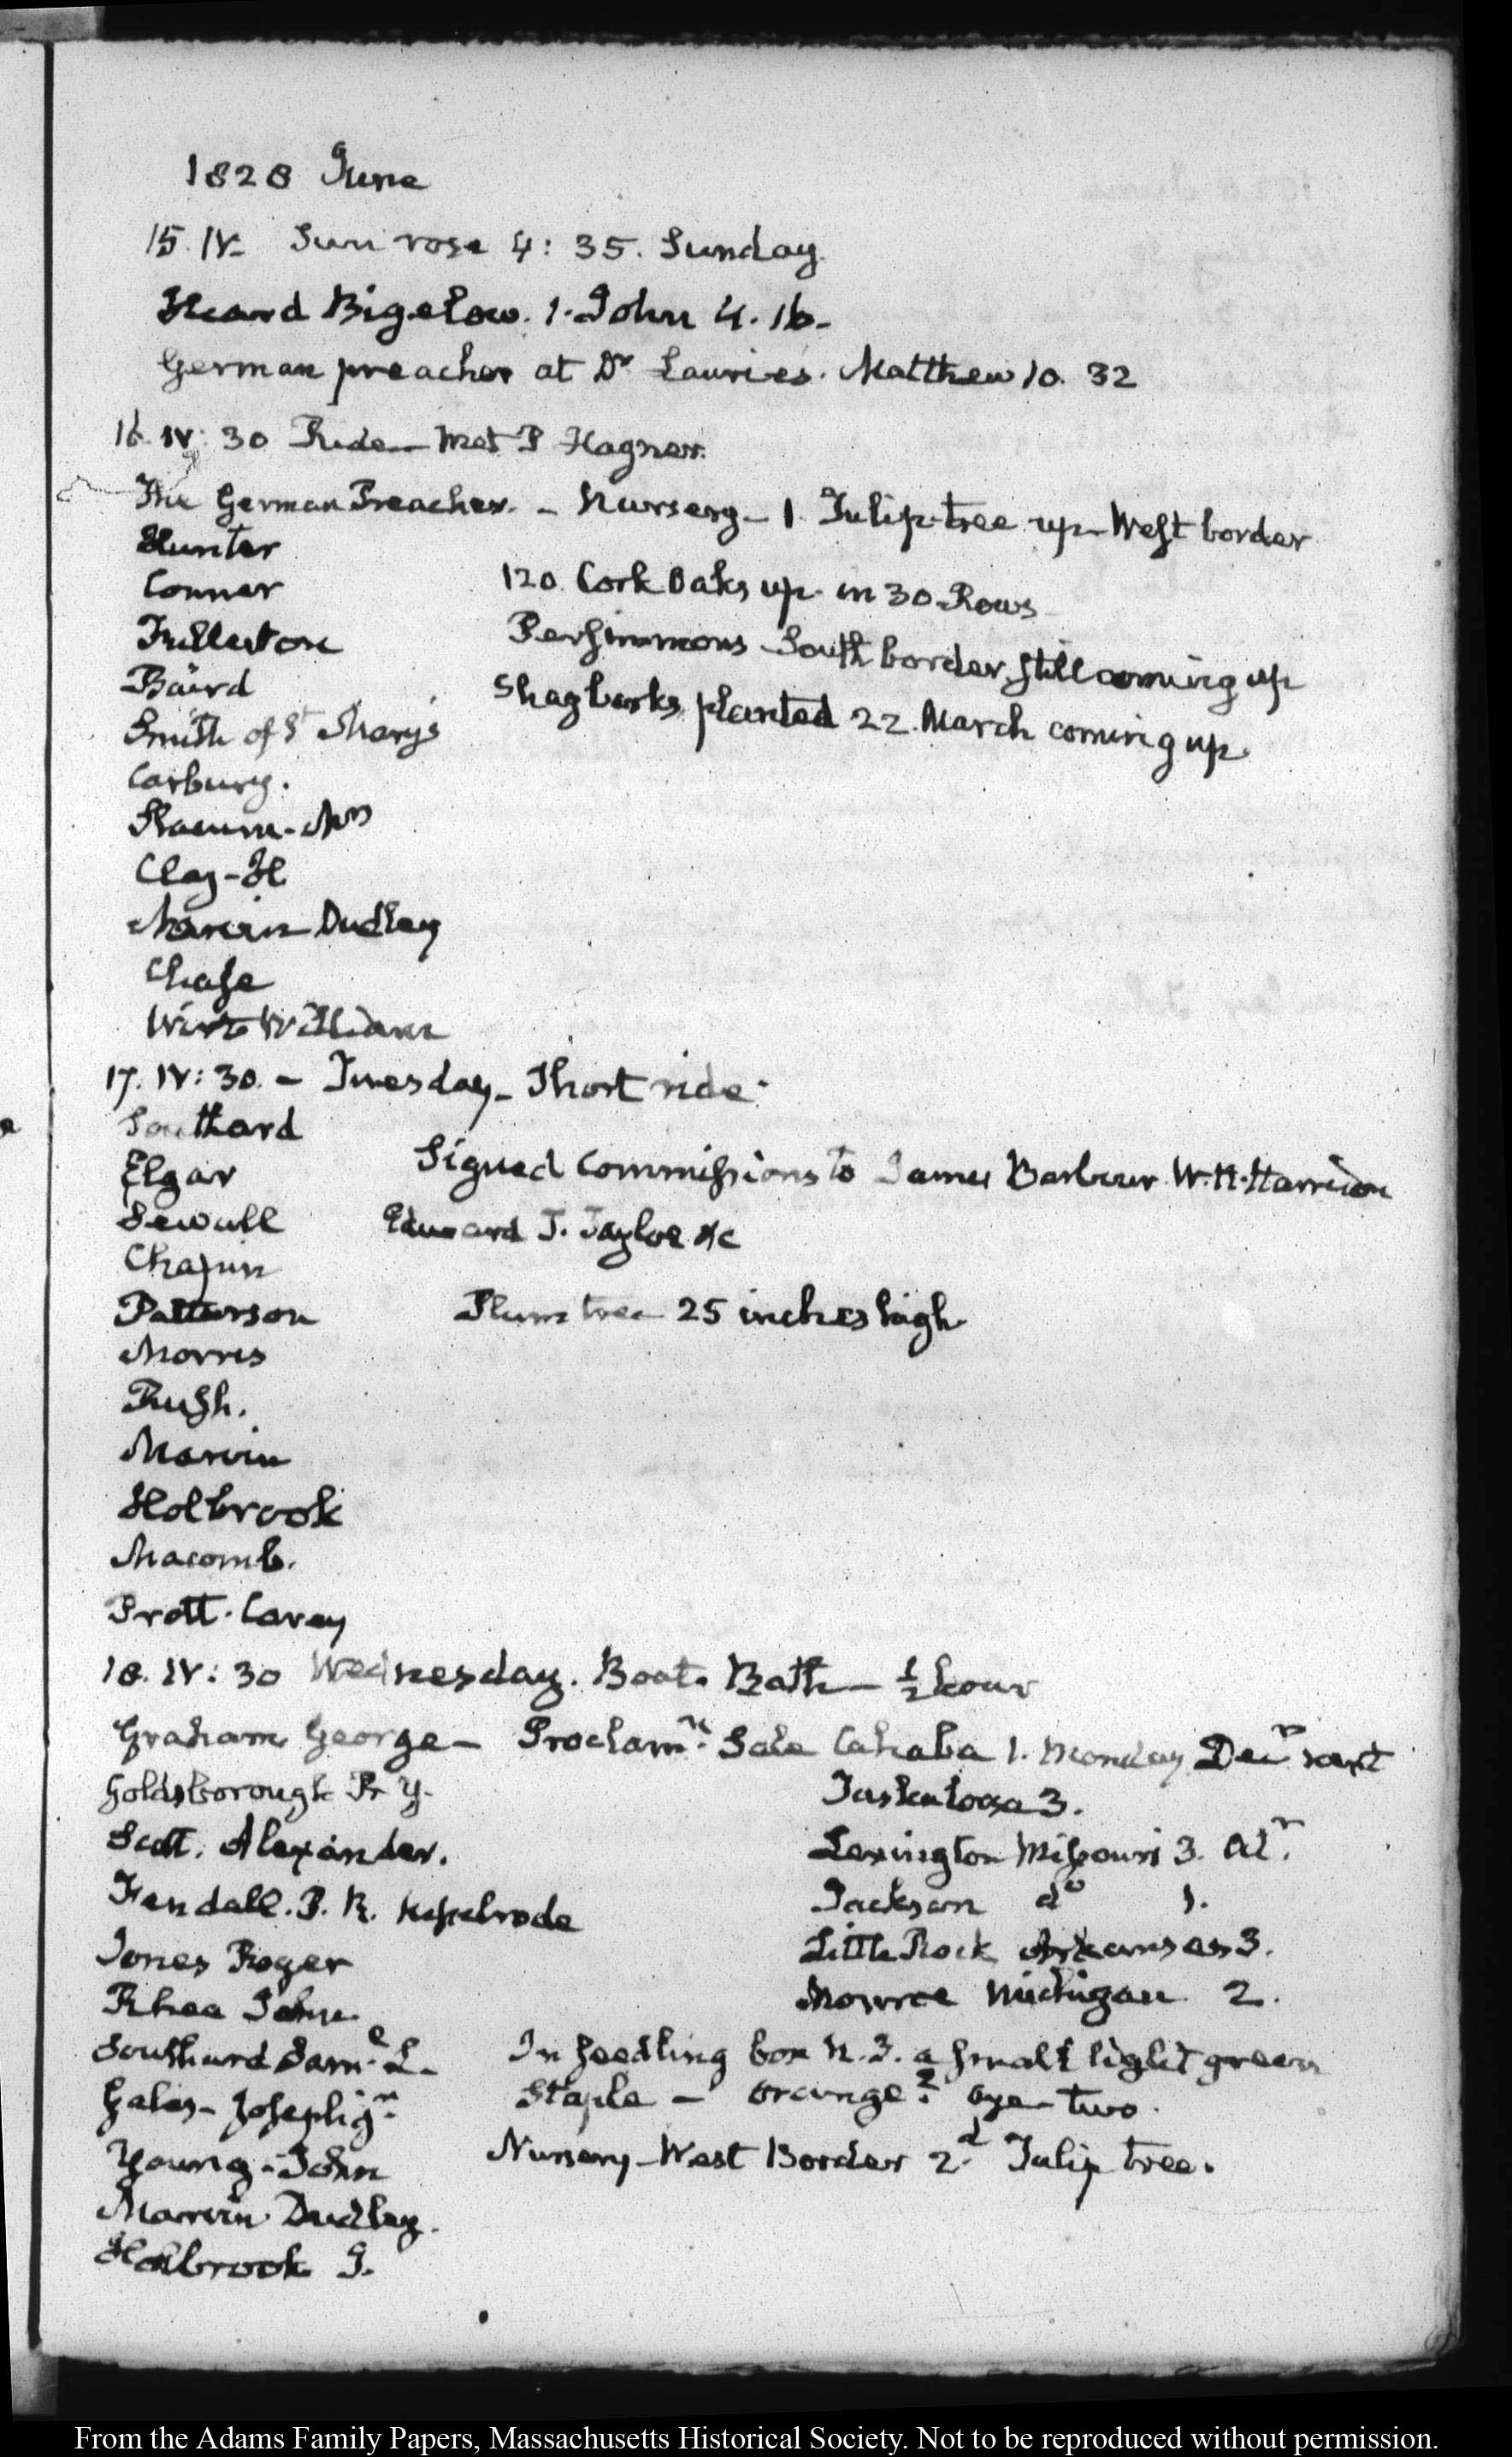 1828 June
15. IV. Sun rose 4: 35. Sunday.
Heard Bigelow. 1. John 4. 16.
German preacher at Dr Lauries. Matthew 10. 32
16. IV: 30 Ride — Met P Hagner.
The German Preacher. — Nursery — 1. Tulip-tree up — West border
Hunter
Conner 120. Cork Oaks up in 30 Rows
Fullerton Persimmons South border, still coming up
Baird Shagbarks planted 22. March coming up
Smith of St Mary's
Carbury.
Slacum - Mrs
Clay - H
Marvin Dudley
Chase
Wirt William
17. IV: 30. — Tuesday — Short ride.
Southard
Elgar Signed Commissions to James Barbour W. H. Harrison
Sewall Edward T. Tayloe &c
Chapin
Patterson Plum tree 25 inches high
Morris
Rush.
Marvin
Holbrook
Macomb.
Pratt. Carey
18. IV: 30 Wednesday. Boat. Bath — ½ hour
Graham George — Proclamn. Sale Cahaba 1. Monday Decr next
Goldsborough R. Y. Tuskaloosa 3.
Scott. Alexander. Lexington Missouri 3. Od.r
Fendall. P. R. Jackson do 1.
Jones Roger Little Rock Arkansas 3.
Rhea John Monroe Michigan 2.
Southard Saml. L. In seedling box N. 3. a small light green
Gales - Joseph jr. Staple — orange? Oya two.
Young - John Nursery — West Border 2d. Tulip tree.
Marvin Dudley.
Holbrook J.
From the Adams Family Papers, Massachusetts Historical Society. Not to be reproduced without permission.